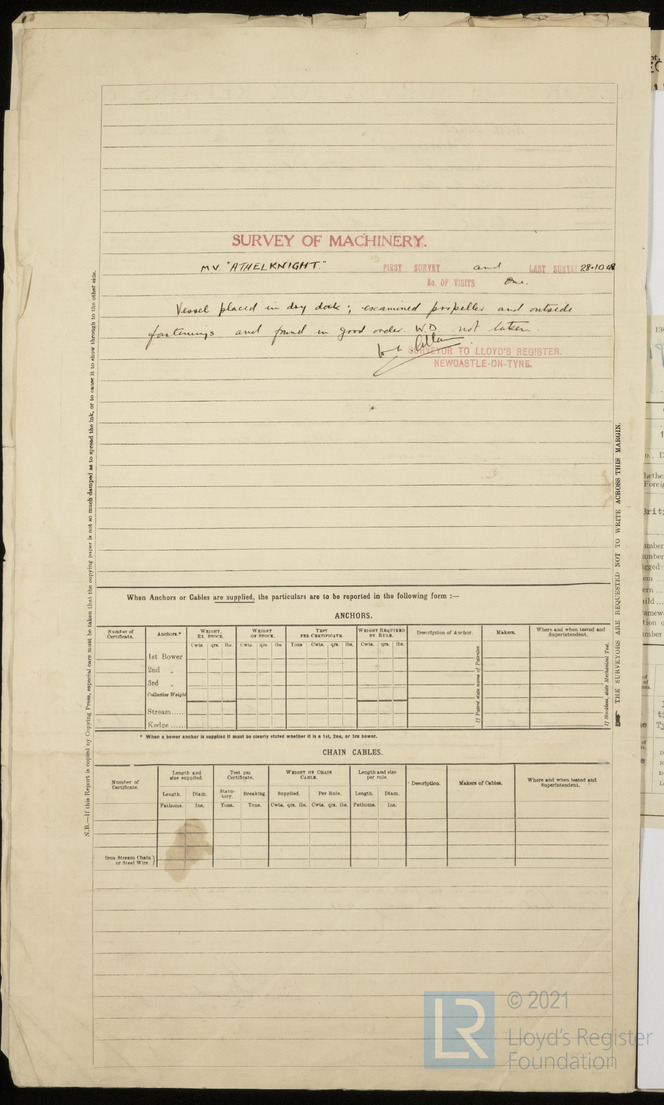 SURVEY OF MACHINERY.
M.V. "ATHELKNIGHT." FIRST SURVEY and LAST SURVEY 28-10
No. OF VISITS One.
Vessel placed in dry dock; examined propeller and outside
fastenings and found in good order. W.D. not taken.
SURVEYOR TO LLOYD'S REGISTER.
NEWCASTLE-ON-TYNE.
N.B.—If this Report is copied by Copying Press, especial care must be taken that the copying paper is not so much damped as to spread the ink, or to cause it to show through to the other side.
THE SURVEYORS ARE REQUESTED NOT TO WRITE ACROSS THIS MARGIN.
When Anchors or Cables are supplied, the particulars are to be reported in the following form :—
ANCHORS.
Number of Certificate. Anchors.* WEIGHT, EX. STOCK. WEIGHT OF STOCK. TEST PER CERTIFICATE. WEIGHT REQUIRED BY RULE. Description of Anchor. Makers. Where and when tested and Superintendent.
Cwts. qrs. lbs. Cwts. qrs. lbs. Tons Cwts. qrs. lbs. Cwts. qrs. lbs.
1st Bower
2nd "
3rd "
Collective Weight
Stream
Kedge
If Patent state name of Patentee.
If Stockless, state Mechanical Test.
* When a bower anchor is supplied it must be clearly stated whether it is a 1st, 2nd, or 3rd bower.
CHAIN CABLES.
Number of Certificate. Length and size supplied. Test per Certificate. WEIGHT OF CHAIN CABLE. Length and size per rule. Description. Makers of Cables. Where and when tested and Superintendent.
Length. Diam. Statutory. Breaking. Supplied. Per Rule. Length. Diam.
Fathoms. Ins. Tons. Tons. Cwts. qrs. lbs. Cwts. qrs. lbs. Fathoms. Ins.
Iron Stream Chain or Steel Wire
LR
© 2021
Lloyd's Register
Foundation